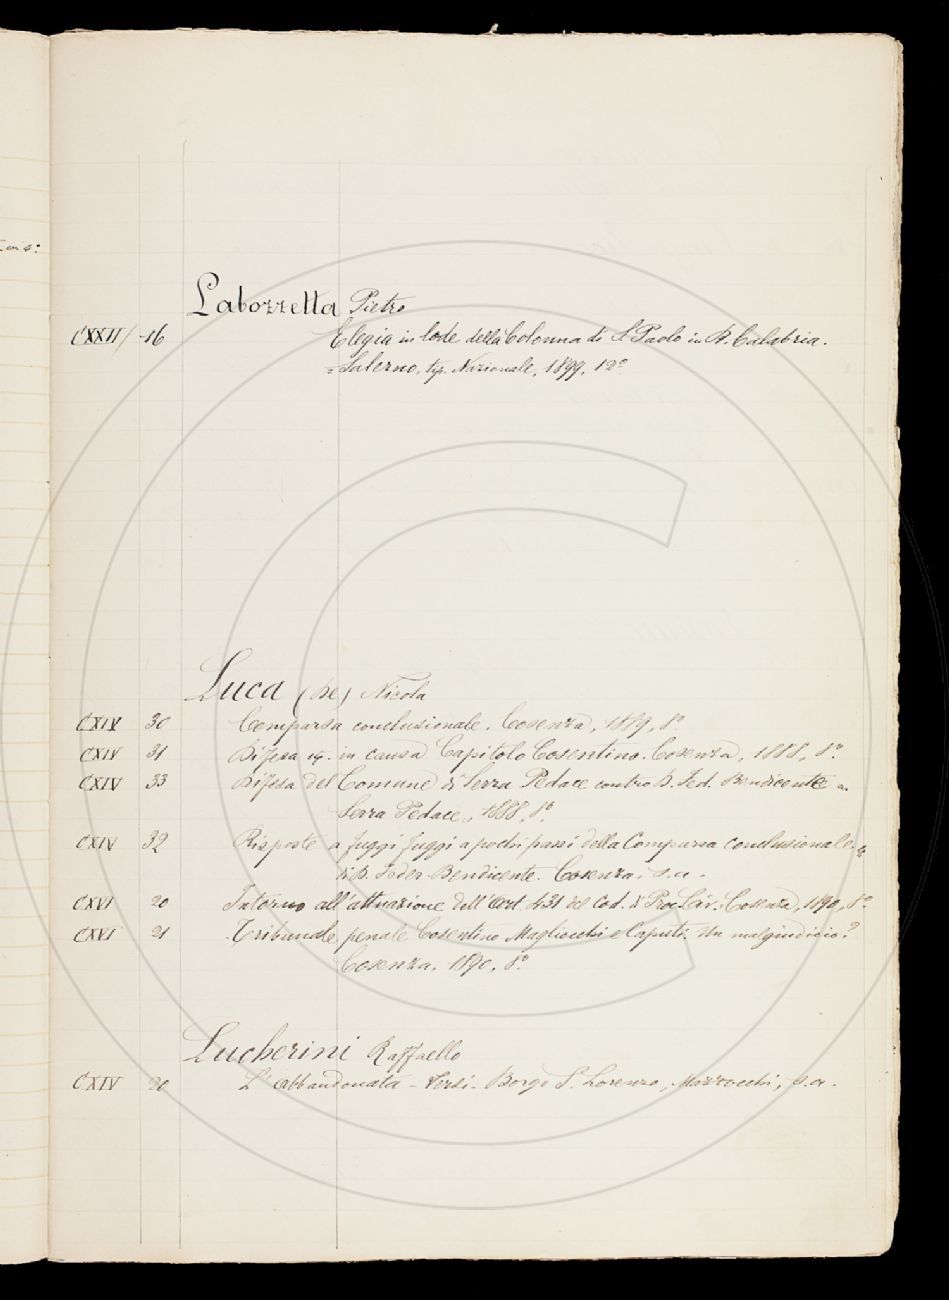 Labozzetta Pietro
CXXII / 16 Elegia in lode della Colonna di S. Paolo in R. Calabria.
= Salerno, tip. Nazionale, 1899, 12º
Luca (De) Nicola
CXIV 30 Comparsa conclusionale. Cosenza, 1889, 8º
CXIV 31 Difesa in causa Capitolo Cosentino. Cosenza, 1888, 8º
CXIV 33 Difesa del Comune di Serra Pedace contro D. Fed. Bendicente
Serra Pedace, 1888, 8º
CXIV 32 Risposte a fuggi fuggi a pochi passi della Comparsa conclusionale
di D. Feder. Bendicente. Cosenza, s.a.
CXVI 20 Intorno all'attuazione dell'Art. 431 del Cod. di Proc. Civ. Cosenza, 1890, 8º
CXVI 21 Tribunale penale Cosentino Magliocchi e Caputi. Un malgiudicio?
Cosenza, 1890, 8º
Lucherini Raffaello
CXIV 20 L'Abbandonata - Versi. Borgo S. Lorenzo, Mazzocchi, s.a.